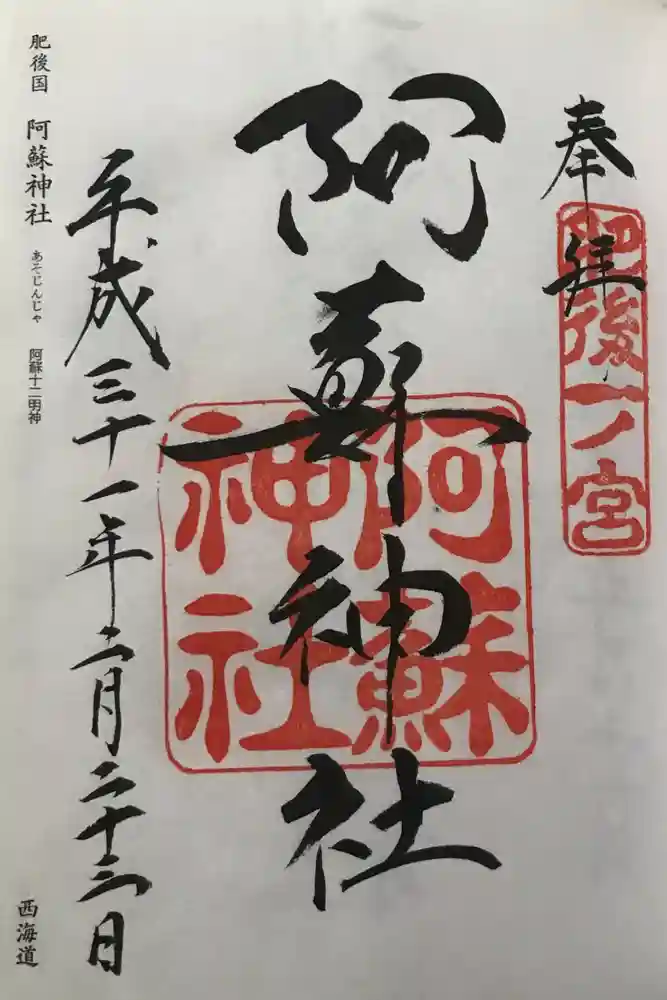 奉拝
肥後一ノ宮
阿蘇神社
阿蘇神社
平成三十一年二月二十三日
肥後国 阿蘇神社 あそじんじゃ 阿蘇十二明神
西海道